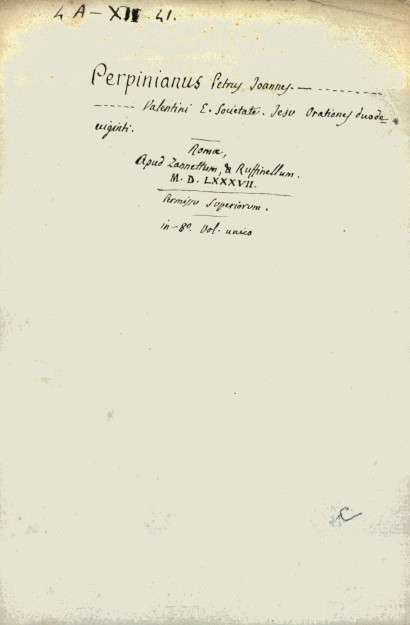 4 A-XII-41.
Perpinianus Petrus Joannes.
Valentini E. Societate. Jesu Orationes duode=
viginti.
Romæ,
Apud Zannettum, & Ruffinellum.
M. D. LXXXVII.
Permissu Superiorum.
in-8º. Vol. unico
C